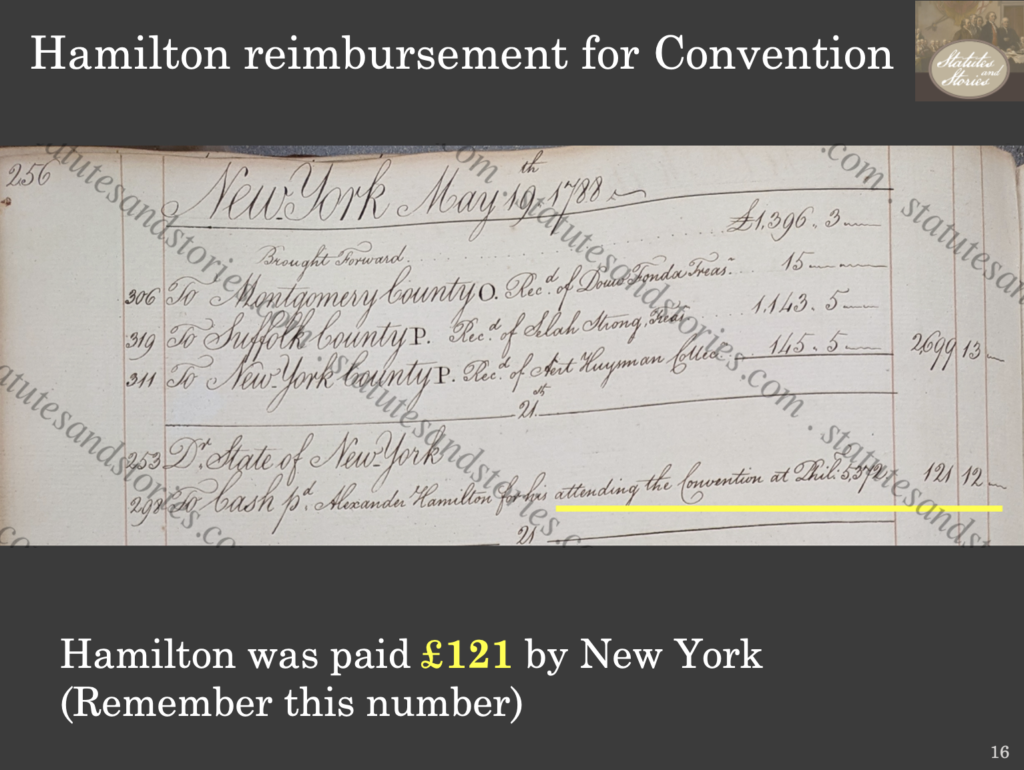 Hamilton reimbursement for Convention
Statutes and Stories
256
New York May 19th 1788
Brought Forward £1,396.3
306 To Montgomery County O. Recd. of Douw Fonda Treasr. 15
319 To Suffolk County P. Recd. of Selah Strong, Treasr. 1.143.5
311 To New York County P. Recd. of 145.5 2699 13
21st
253 Dr. State of New York
To Cash pd. Alexander Hamilton for his attending the Convention at Phil: 121 12
21
statutesandstories.com
Hamilton was paid £121 by New York
(Remember this number)
16